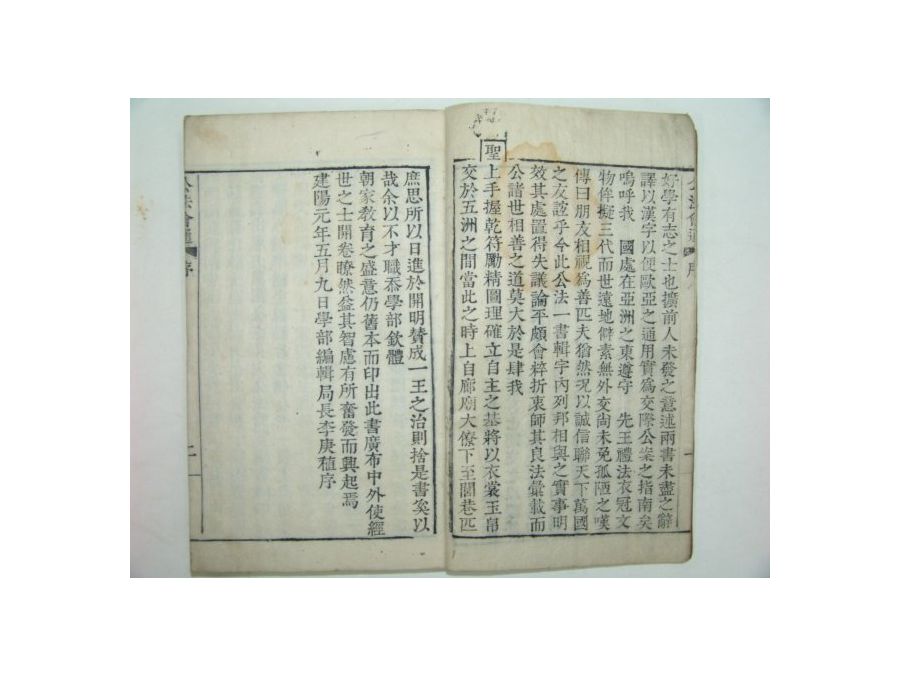 好學有志之士也擴前人未發之意述兩書未盡之辭
譯以漢字以便歐亞之通用實爲交際公案之指南矣
嗚呼我 國處在亞洲之東遵守 先王禮法衣冠文
物侔擬三代而世遠地僻素無外交尙未免孤陋之嘆
傳曰朋友相視爲善匹夫猶然況以誠信聯天下萬國
之友誼乎今此公法一書輯字內列邦相與之實事明
效其處置得失議論平頗會粹折衷師其良法彙載而
公諸世相善之道莫大於是肆我
聖上手握乾符勵精圖理確立自主之基將以衣裳玉帛
交於五洲之間當此之時上自廊廟大僚下至閭巷匹
公法會通 序
一
庶思所以日進於開明贊成一王之治則捨是書奚以
哉余以不才職忝學部欽體
朝家敎育之盛意仍舊本而印出此書廣布中外使經
世之士開卷瞭然益其智慮有所奮發而興起焉
建陽元年五月九日學部編輯局長李庚稙序
公法會通 序
二